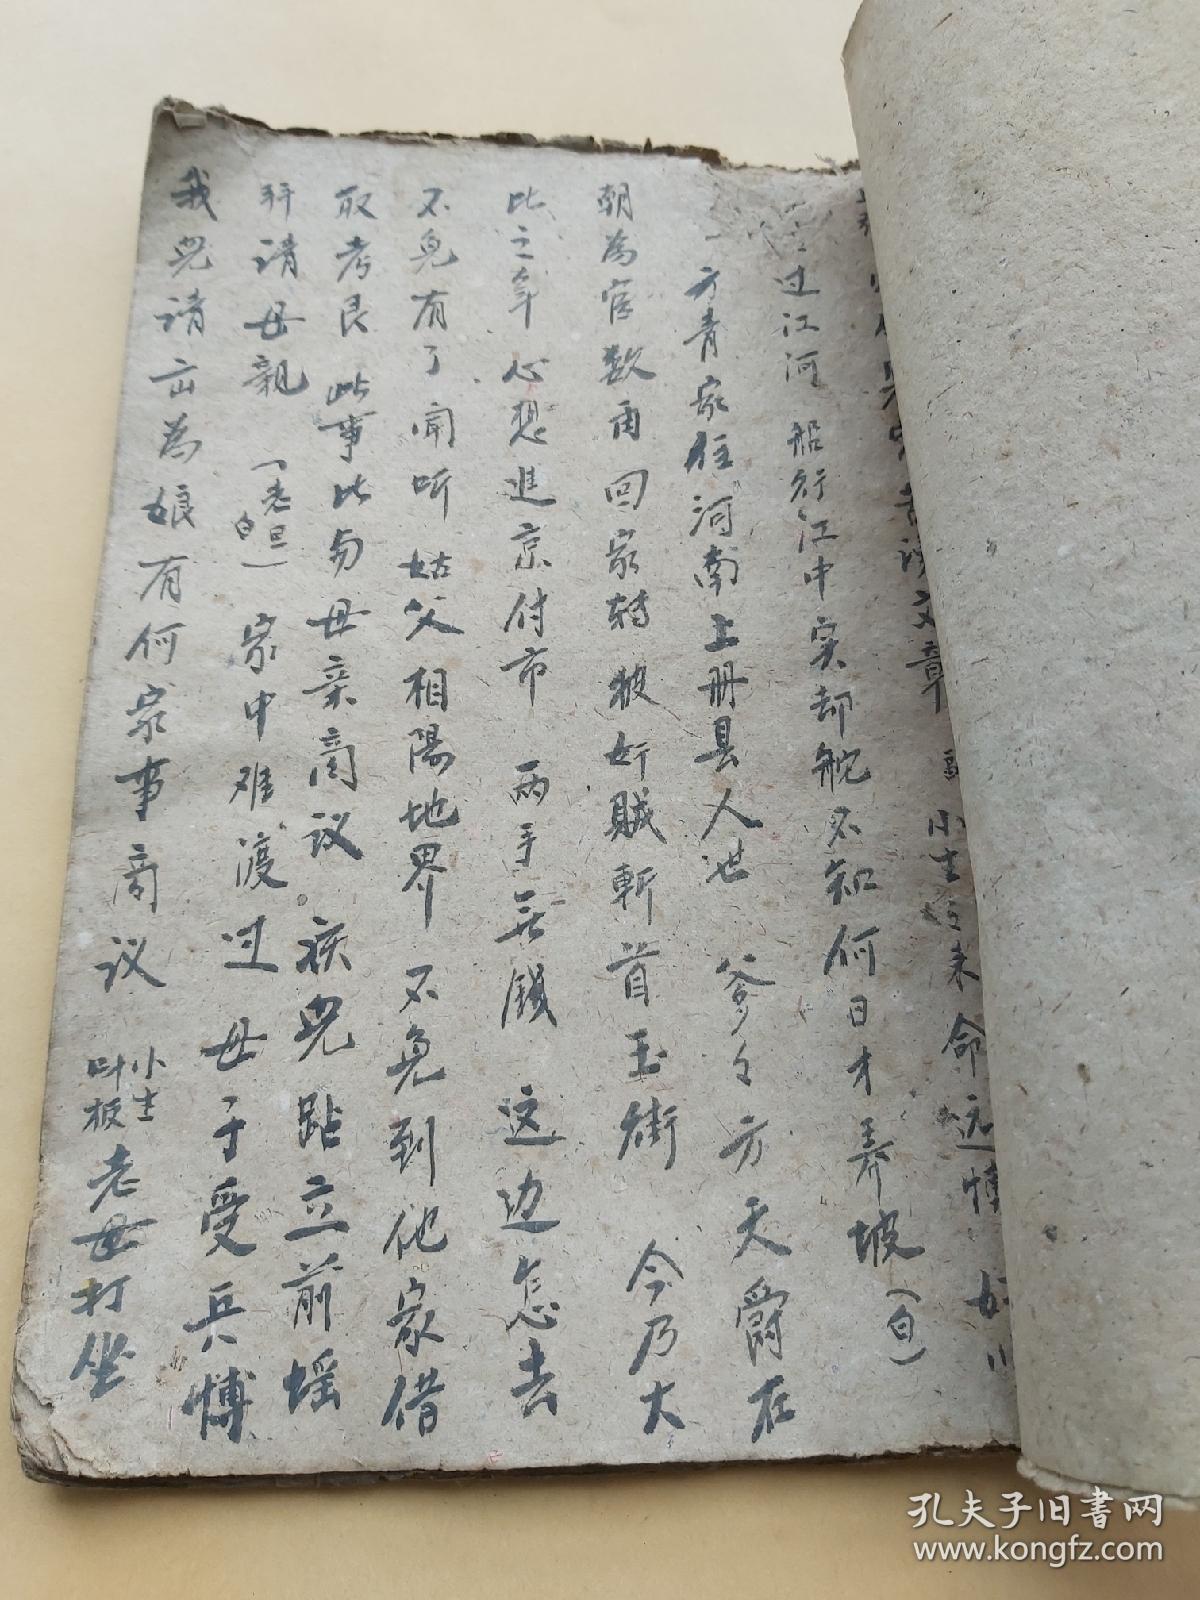 苦读文章 小生 来 命运
过江河 船行江中实却舵不知何日才弄坡（白）
方青家住河南上册县人世 爹々方天爵在
朝為官数甬 回家转被奸贼斬首玉街 今乃大
比之年 心想進京付市 两手无錢 这边怎去
不免有了闻听 姑父相陽地界 不免到他家借
取考艮 此事比勿母亲商议 疾兒跕立前
请母親（老旦白）家中难渡过 母子受兵
我兒请出為娘有何家事商议 小生叫板 老母打坐
孔夫子旧书网
www.kongfz.com